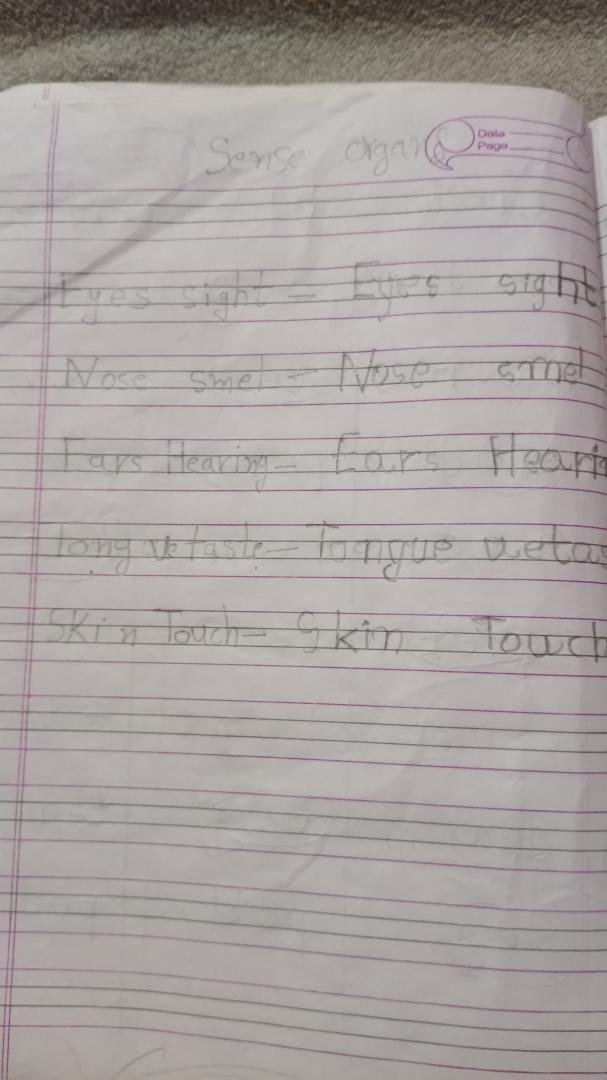 Sense organs
Date
Page
Eyes sight - Eyes sight
Nose smel - Nose smel
Ears Hearing - Ears Hearin
Tongue taste - Tongue uetas
Skin Touch - Skin Touch